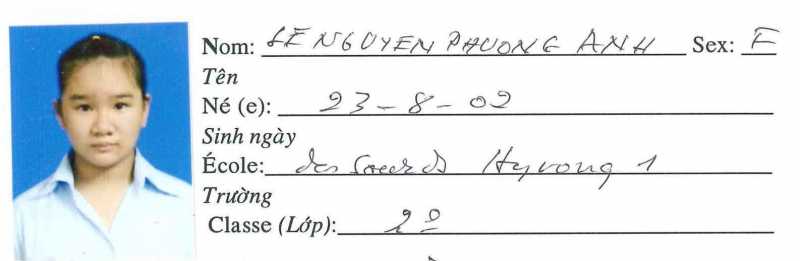 Nom: LE NGUYEN PHUONG ANH Sex: F
Tên
Né (e): 23-8-02
Sinh ngày
École: des Soeurs Hyvong 1
Trường
Classe (Lớp): 2º